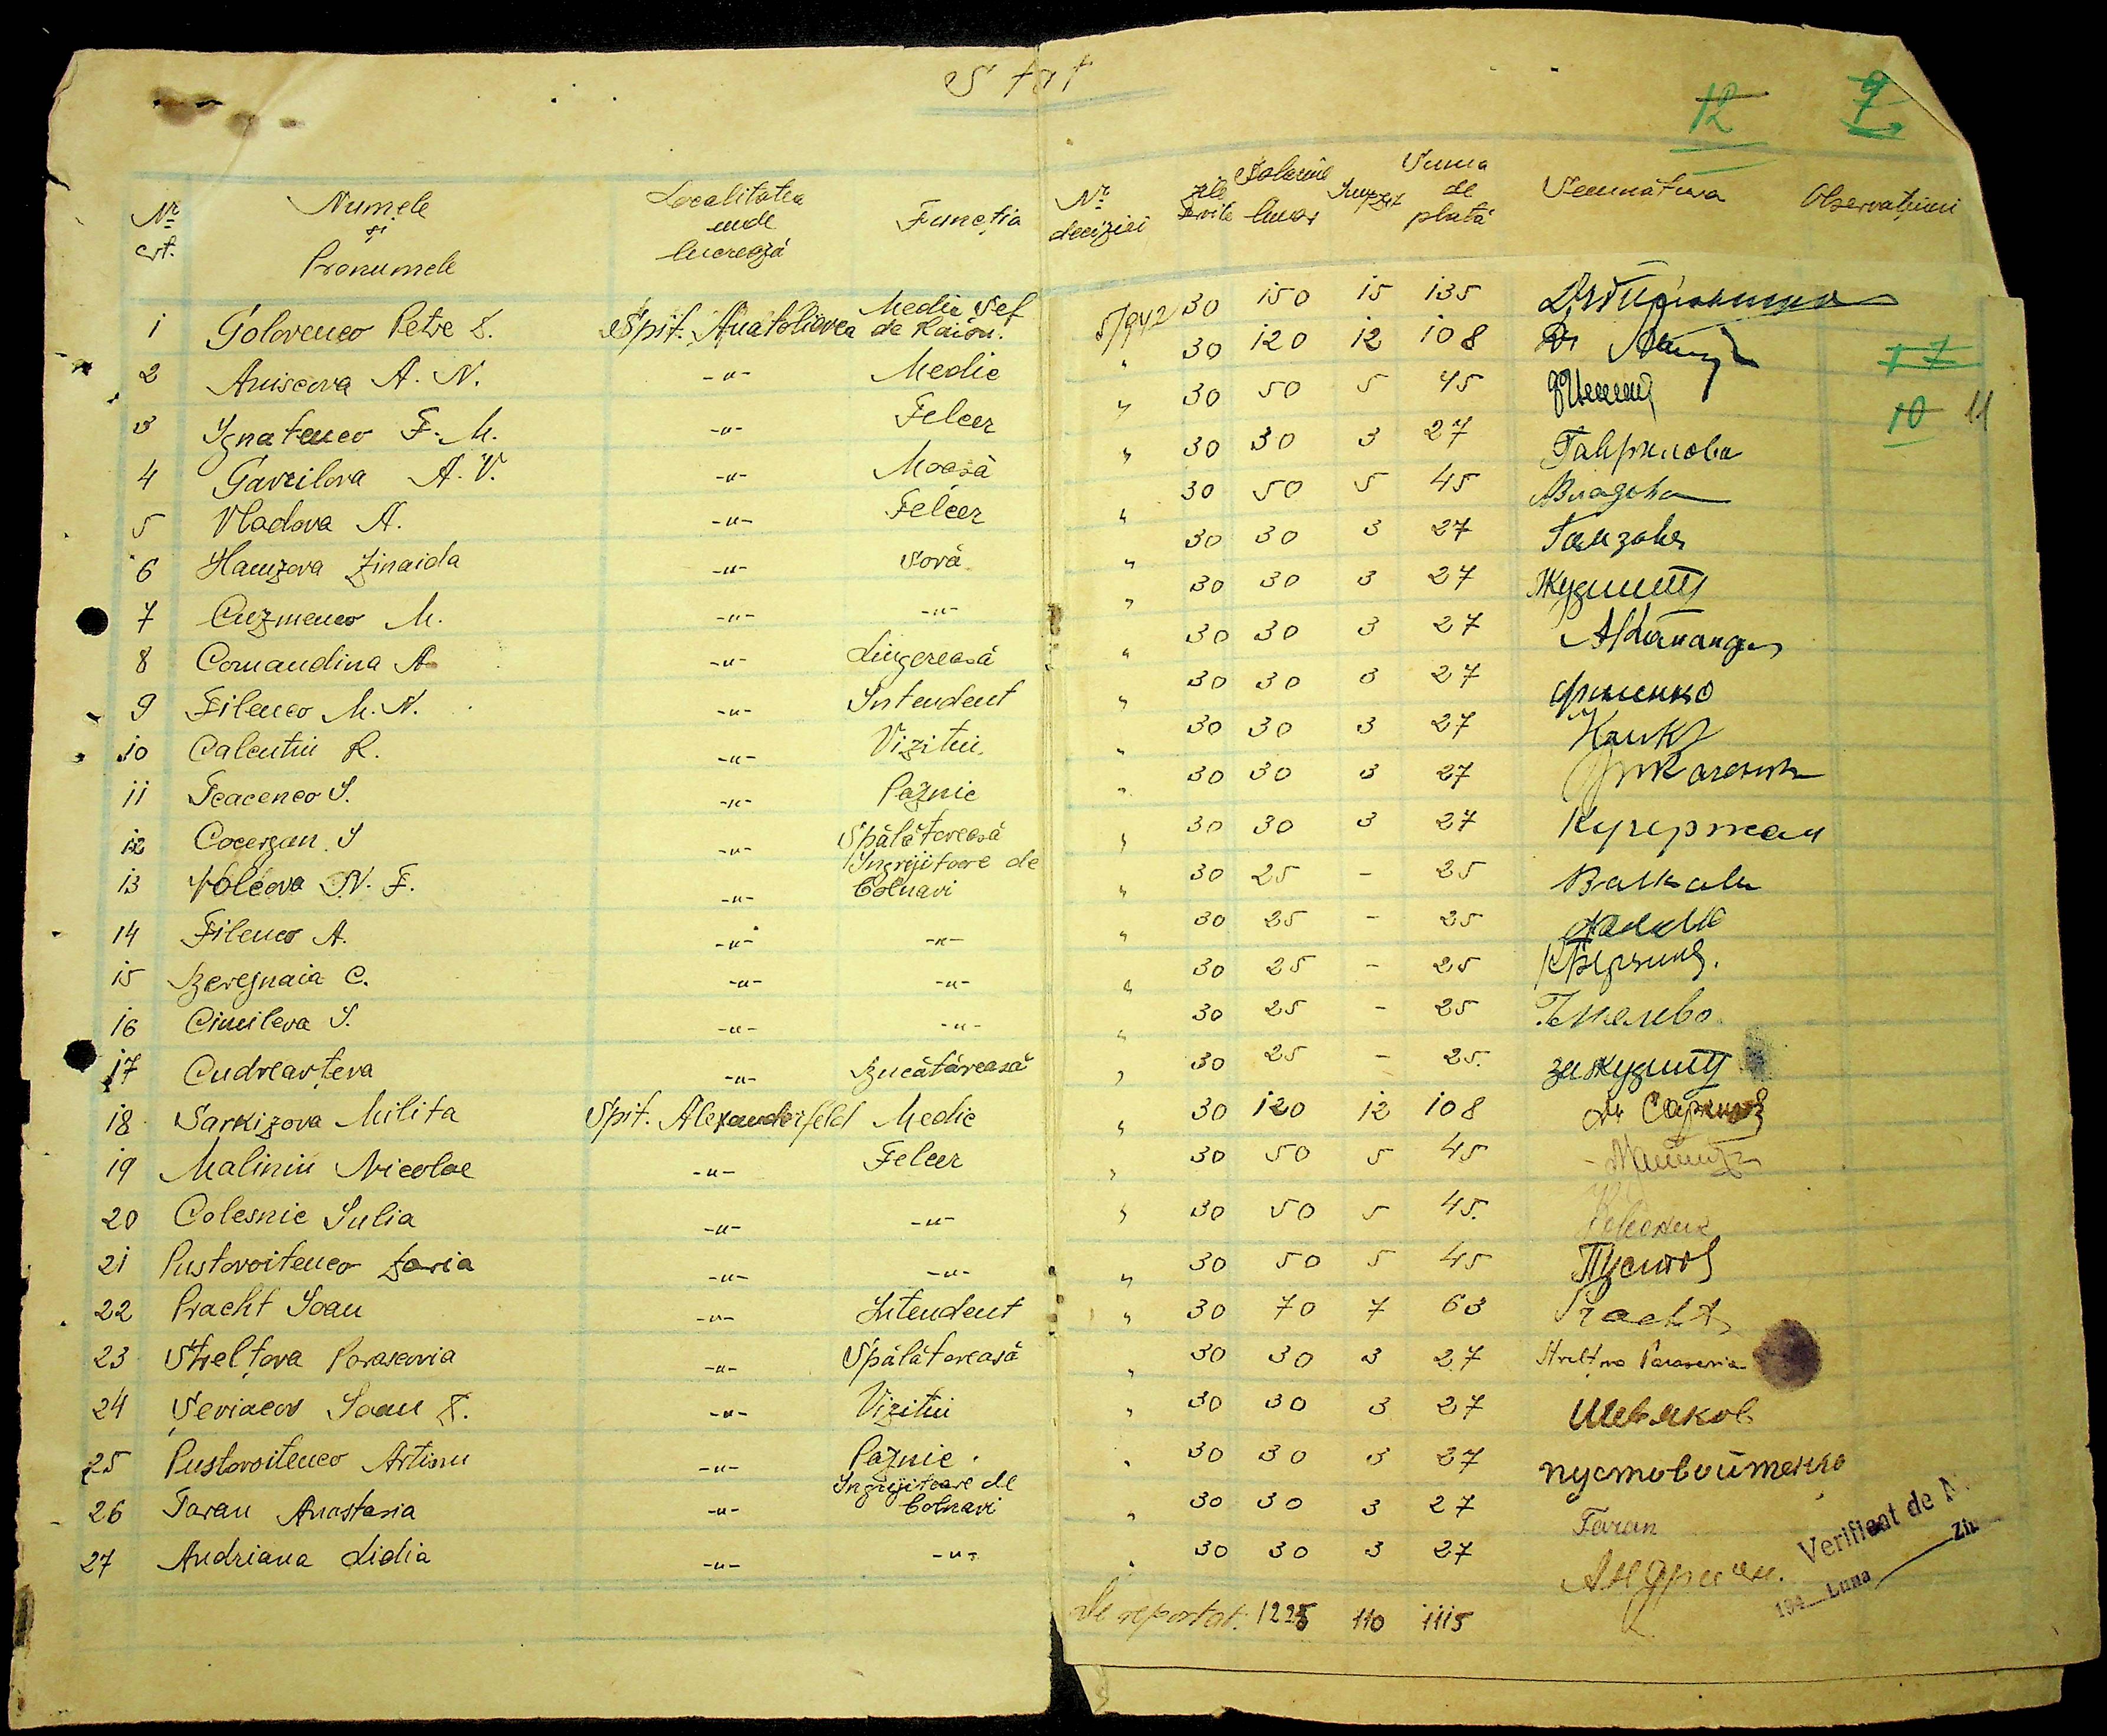 Stat
12 9
7
Nr. crt. Numele și Pronumele Localitatea unde lucrează Funcția Nr. deciziei zile servite Salariul lunar Impozit Suma de plată Semnătura Observațiuni
1 Golovenco Petre T. Spit. Anatolievca Medic Șef de Raion. 5/942 30 150 15 135
2 Aniscova A. N. -"- Medic " 30 120 12 108 Dr
17
3 Ignatenco F. M. -"- Felcer " 30 50 5 45
10 11
4 Gavrilova A. V. -"- Moașă " 30 30 3 27 Гаврилова
5 Vladova A. -"- Felcer " 30 50 5 45 Владова
6 Hamzova Zinaida -"- Soră " 30 30 3 27 Гамзова
7 Cuzmenco M. -"- -"- " 30 30 3 27
8 Comandina A -"- Lingereasă " 30 30 3 27
9 Filenco M. N. -"- Intendent " 30 30 3 27 Филенко
10 Calentin R. -"- Vizitiu " 30 30 3 27
11 Tcacenco I. -"- Paznic " 30 30 3 27
12 Cocerjan I -"- Spălătoreasă " 30 30 3 27 Кучержан
13 Volcova N. F. -"- Ingrijitoare de bolnavi " 30 25 - 25 Валкова
14 Filenco A. -"- -"- " 30 25 - 25
15 Berejnaia C. -"- -"- " 30 25 - 25
16 Cimileva I. -"- -"- " 30 25 - 25
17 Cudreavțeva -"- Bucătăreasă " 30 25 - 25.
18 Sarkizova Milita Spit. Alexanderfeld Medic " 30 120 12 108 Dr
19 Malinin Nicolae -"- Felcer " 30 50 5 45
20 Colesnic Iulia -"- -"- " 30 50 5 45.
21 Pustovoitenco Daria -"- -"- " 30 50 5 45 Пустов
22 Pracht Ioan -"- Intendent " 30 70 7 63 Pracht
23 Strelțova Parascovia -"- Spălătoreasă " 30 30 3 27 Strelțova Parascovia
24 Șeviacov Ioan T. -"- Vizitiu " 30 30 3 27 Шевяков
25 Pustovoitenco Artiom -"- Paznic. " 30 30 3 27 пустовойтенко
26 Taran Anastasia -"- Ingrijitoare de bolnavi " 30 30 3 27 Taran
27 Andriana Lidia -"- -"- " 30 30 3 27 Андриан.
De reportat. 1225 110 1115
Verificat de
194 Luna Ziu